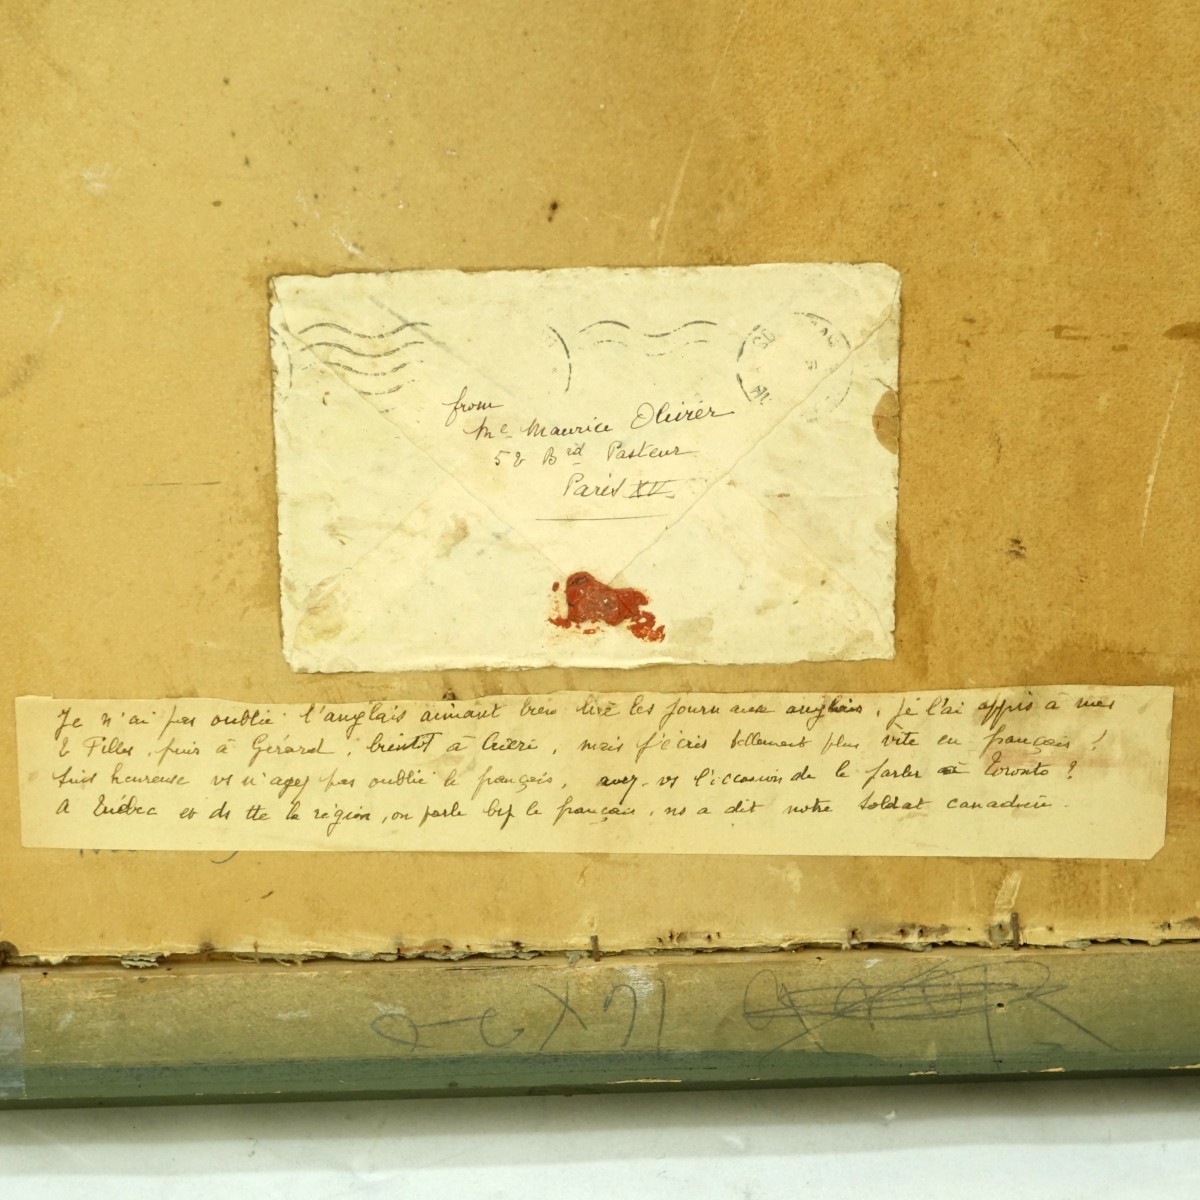 from
Me Maurice Olivier
52 Brd Pasteur
Paris XV
Je n'ai pas oublié l'anglais aimant bien lire les journaux anglais, je l'ai appris à mes
2 Filles, puis à Gérard, bientôt à mais j'écris tellement plus vite en français !
suis heureuse vs n'ayez pas oublié le français, avez-vs l'occasion de le parler à Toronto ?
A Québec et ds tte la région, on parle bcp le français, ns a dit notre soldat canadien.